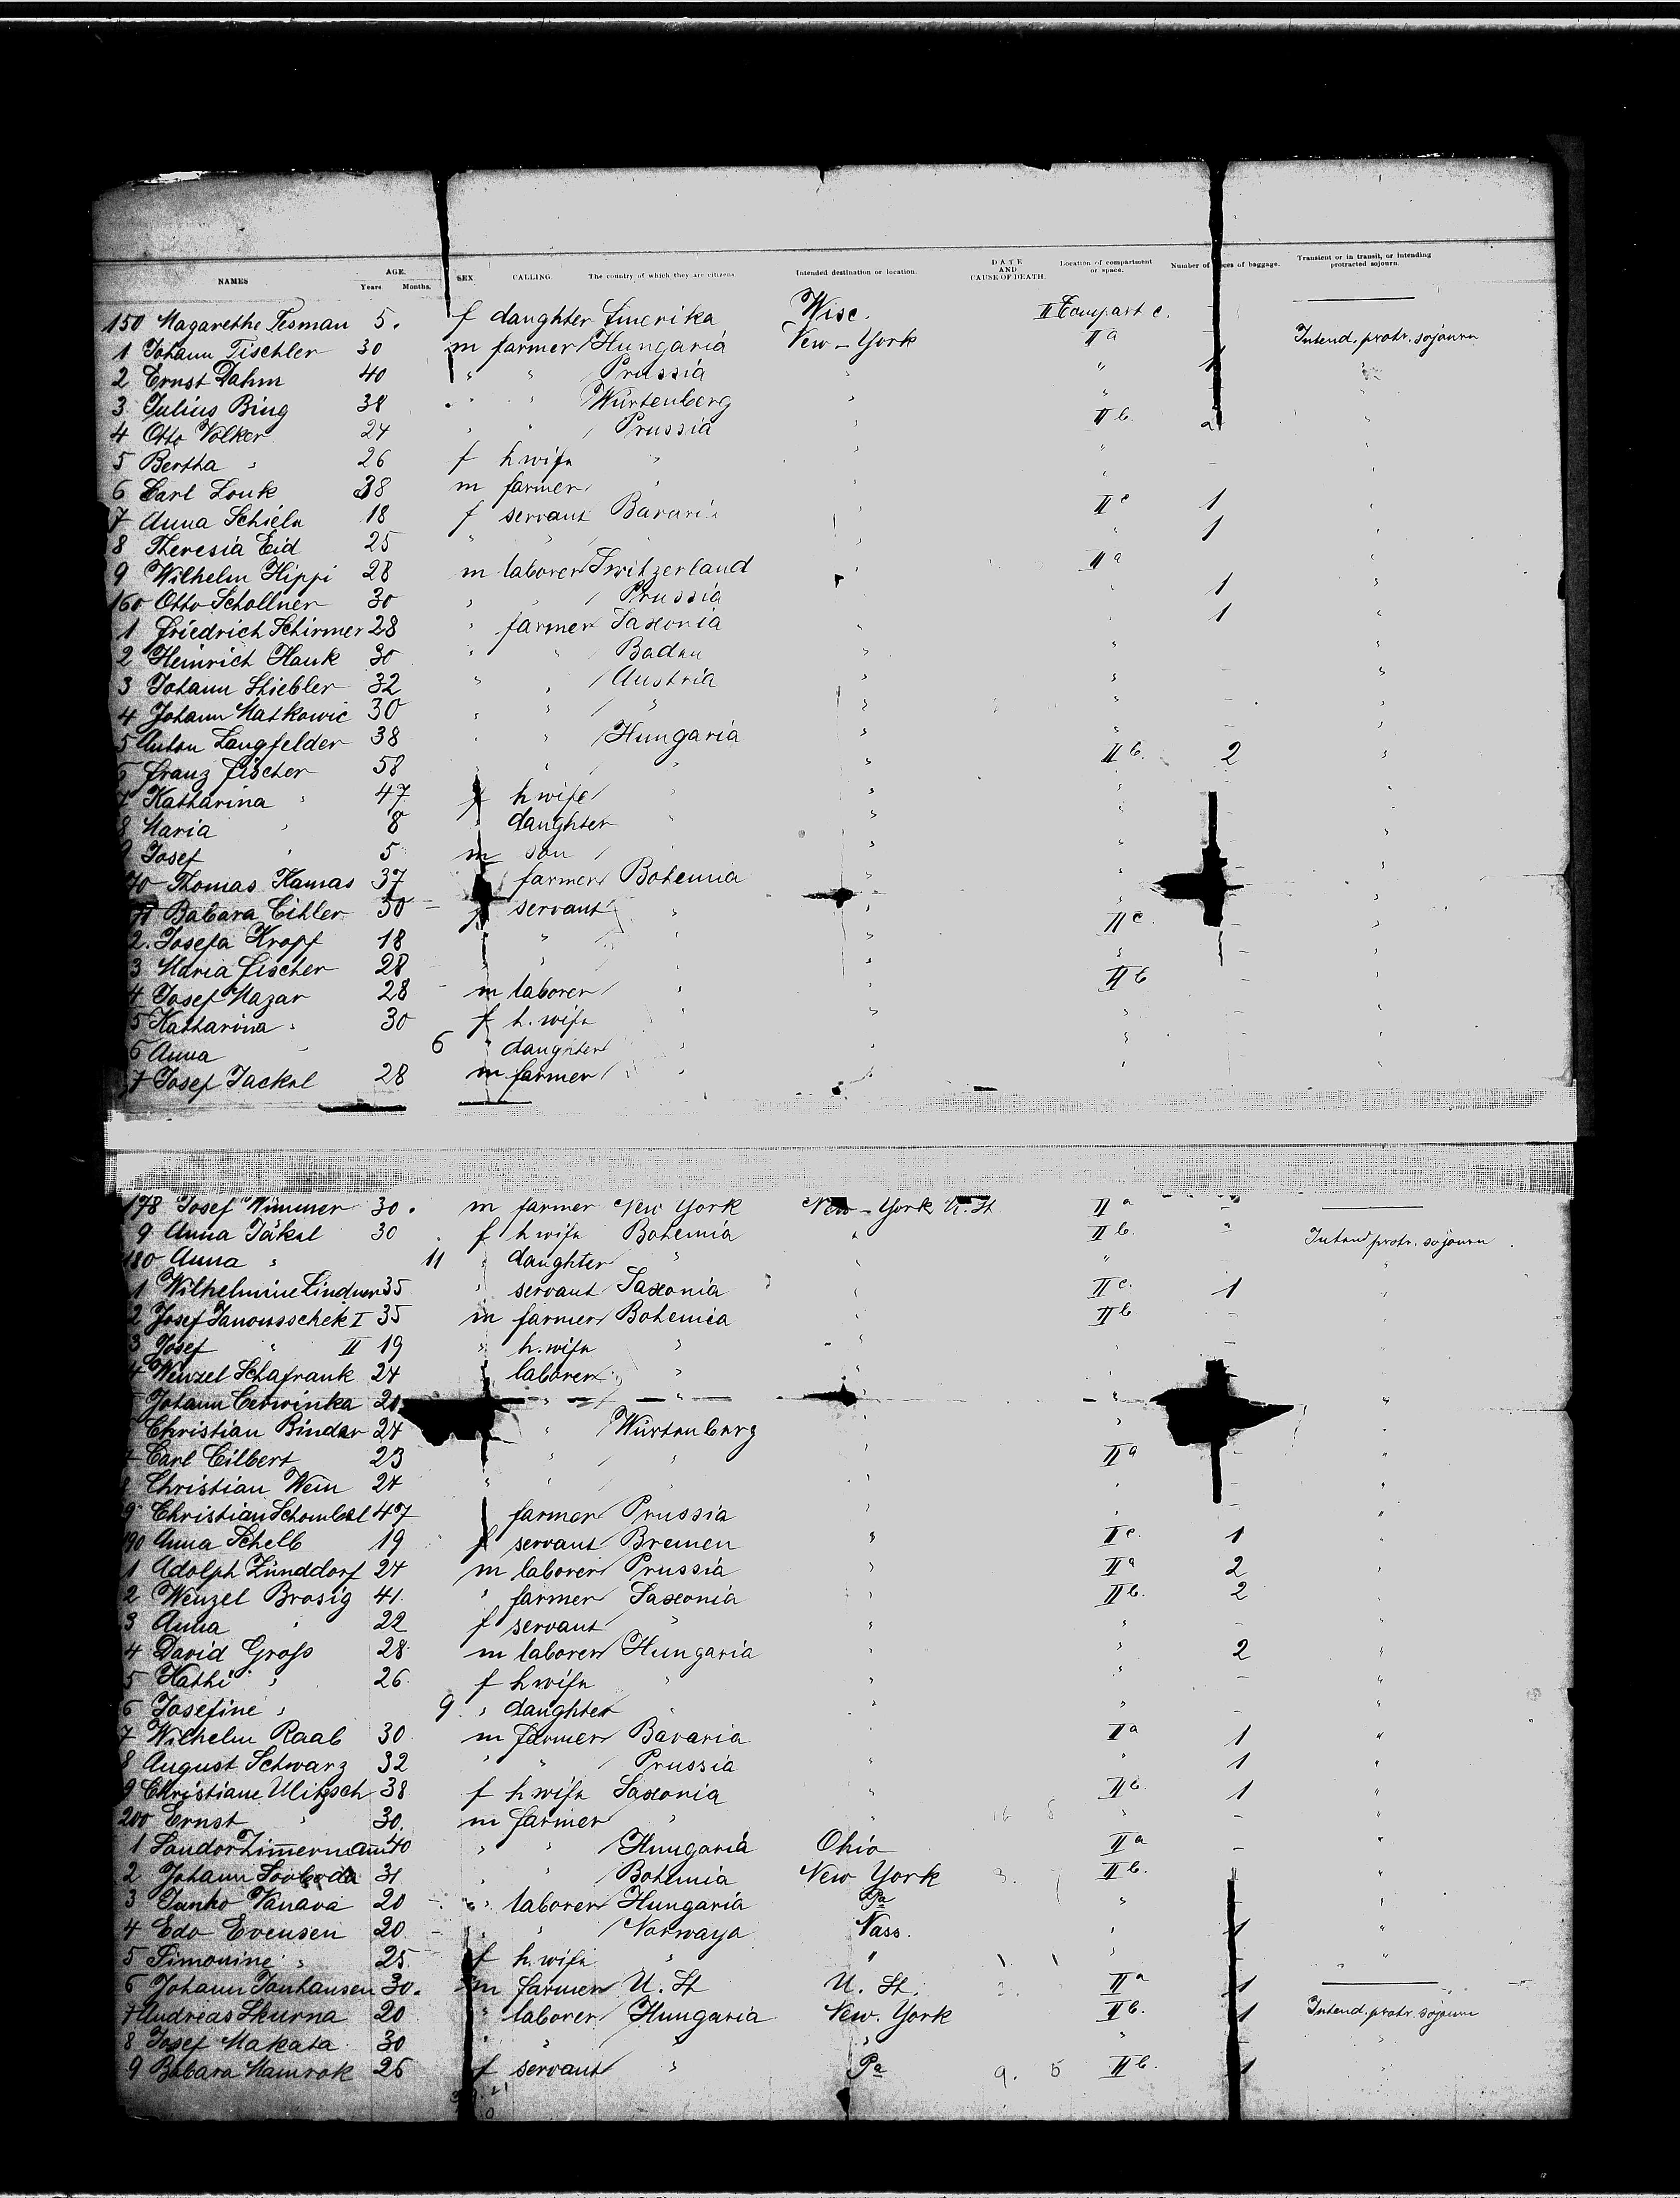 NAMES AGE. Years Months. SEX. CALLING. The country of which they are citizens. Intended destination or location. DATE AND CAUSE OF DEATH. Location of compartment or space. Number of pieces of baggage. Transient or in transit, or intending protracted sojourn.
150 Magarethe Tesman 5. f daughter Amerika Wisc. II Compart c.
1 Johann Tischler 30 m farmer Hungaria New-York II a Intend. protr. sojourn
2 Ernst Dahm 40 " " Prussia " " 1 "
3 Julius Bing 38 " " Würtenberg " " "
4 Otto Volker 24 " " Prussia " II b. 2 "
5 Bertha " 26 f hwife " " " - "
6 Carl Louk 38 m farmer " " " "
7 Anna Schiele 18 f servant Bavaria " II c 1 "
8 Theresia Eid 25 " " " " " 1 "
9 Wilhelm Hippi 28 m laborer Switzerland " II a "
160 Otto Schollner 30 " " Prussia " 1 "
1 Friedrich Schirmer 28 " farmer Saxonia " " 1 "
2 Heinrich Hauk 30 " " Baden " " "
3 Johann Stiebler 32 " " Austria " " - "
4 Johann Matkowic 30 " " " " " - "
5 Anton Langfelder 38 " " Hungaria " " - "
6 Franz Fischer 58 " " " " II b. 2 "
7 Katharina " 47 f hwife " " " "
8 Maria " 8 " daughter " " " "
9 Josef " 5 m son " " " "
70 Thomas Kamas 37 farmer Bohemia " " "
71 Babara Cihler 50 - f servant " " " "
2. Josefa Kropf 18 " " " " II c. - "
3 Maria Fischer 28 " " " " " - "
4 Josef Mazar 28 - m laborer " " II b - "
5 Katharina " 30 f h. wife " " " - "
6 Anna " 6 " daughter " " " "
7 Josef Jackel 28 m farmer " " " "
178 Josef Wimmer 30. m farmer New York New-York U. St. II a -
9 Anna Jäkel 30 f hwife Bohemia " II b. " Intend protr. sojourn
180 Anna " 11 " daughter " " " "
1 Wilhelmine 35 " servant Saxonia " II c. 1 "
2 Josef Janousschek I 35 m farmer Bohemia " II b -
3 Josef " II 19 " h. wife " " -
4 Wenzel Schafrank 24 laborer " "
Johann Cerwinka " " " "
Christian Binder 24 " Würtenberg " " "
7 Carl Cilbert 23 " " " " II a - "
8 Christian Wein 24 " " " " -
9 Christian 47 farmer Prussia " - "
190 Anna Schelb 19 f servant Bremen " II c. 1 "
1 Adolph Zünddorf 24 m laborer Prussia " II a 2 "
2 Wenzel Brosig 41. " farmer Saxonia " II b. 2 "
3 Anna " 22 f servant " " " - "
4 David Groſs 28. m laborer Hungaria " " 2 "
5 Kathi " 26. f hwife " " " - "
6 Josefine " 9 " daughter " " " - "
7 Wilhelm Raab 30 m farmer Bavaria " II a 1 "
8 August Schwarz 32 " " Prussia " " 1 "
9 Christiane Ulitzsch 38 f hwife Saxonia " II b. 1 "
200 Ernst " 30. m farmer " " 16 8 " - "
1 Sandor Zim̅erman̅ 40 " " Hungaria Ohio II a - "
2 Johann Svoboda 31 " " Bohemia New York 3. II b. "
3 Janko Vanava 20 " laborer Hungaria Pa " "
4 Edo Evensen 20 " " Norwaya 1 "
5 Simonine " 25. f h. wife " " 1 1 " "
6 Johann Janhausen 30. m farmer U. St U. St. II a 1
7 Andreas Skurna 20 " laborer Hungaria New. York II b. 1 Intend. protr. sojourn
8 Josef Makata 30 " " " " " "
9 Babara Mamrok 26 f servant " Pa 9. 5 II b. 1 "